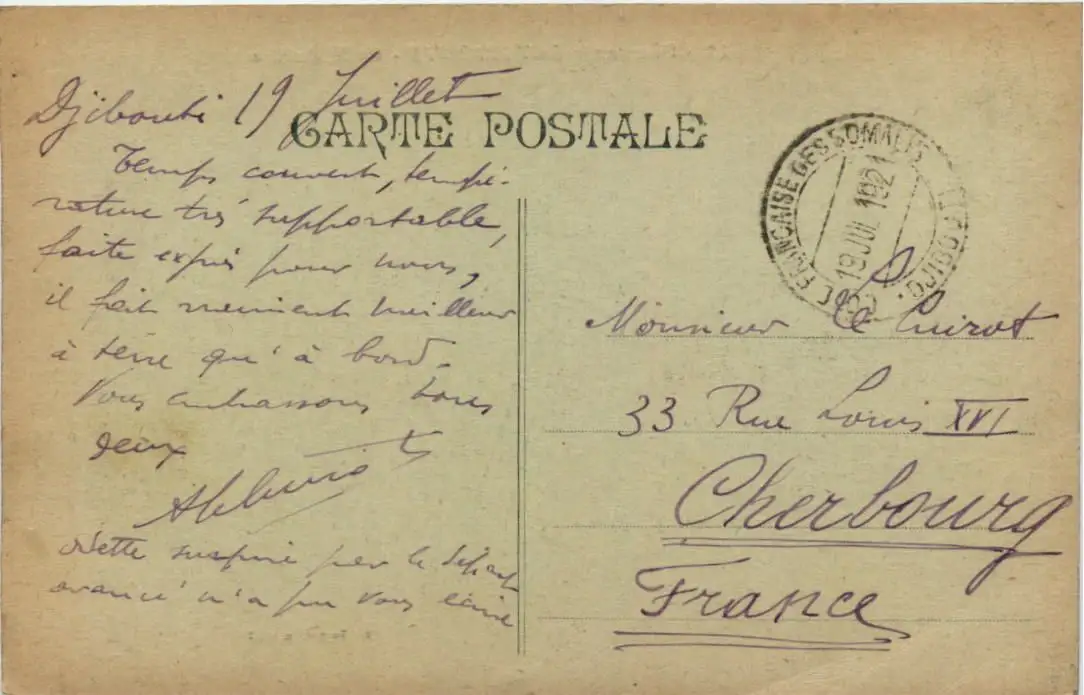 Djibouti 19 Juillet
CARTE POSTALE
Temps couvert, tempé-
rature très supportable,
faite exprès pour nous,
il fait vraiment meilleur
à terre qu'à bord.
Vous embrassons tous
deux
Nette surprise par le départ
avancé n'a pu vous écrire
CÔTE FRANÇAISE DES SOMALIS
DJIBOUTI
19 JUIL 1921
Monsieur Guirot
33 Rue Louis XVI
Cherbourg
France